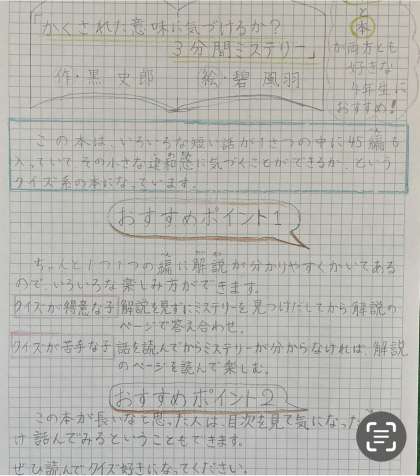 「かくされた意味に気づけるか？
３分間ミステリー」
作・黒 史郎　絵・碧 風羽
と
本
が両方とも
好きな
年生に
おすすめ！
この本は、いろいろな短い話が１さつの中に45編も
入っていて、その小さな違和感に気づくことができるか、という
クイズ系の本になっています。
おすすめポイント１
ちゃんと１つ１つの編に解説が分かりやすくかいてある
ので、いろいろな楽しみ方ができます。
クイズが得意な子 解説を見ずにミステリーを見つけだしてから解説の
ページで答え合わせ。
クイズが苦手な子 話を読んでからミステリーが分からなければ、解説
のページを読んで楽しむ。
おすすめポイント２
この本が長いなと思った人は、目次を見て気になった
け読んでみるということもできます。
ぜひ読んでクイズ好きになってください。